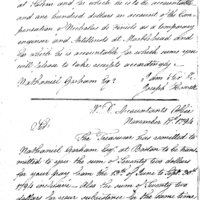 at Salem and for which he is to be accountable,
and one hundred dollars in account of the com
pensation of Nicholas de Finiels as a temporary
engineer and Artillerist at Marblehead And
for which he is accountable, for which sums you
will please to take receipts accordingly
Nathaniel Gorham Esqr
I am Sir &c.
Joseph Howell
W. D. Accountants Office
November 7th 1794
Sir
The Treasurer has remitted to
Nathaniel Gorham Esqr at Boston to be trans
mitted to you the sum of Seventy two dollars
for your pay from the 13th of June to Sept 30th
1794 inclusive. Also the sum of Twenty two
dollars for your subsistence for the same time